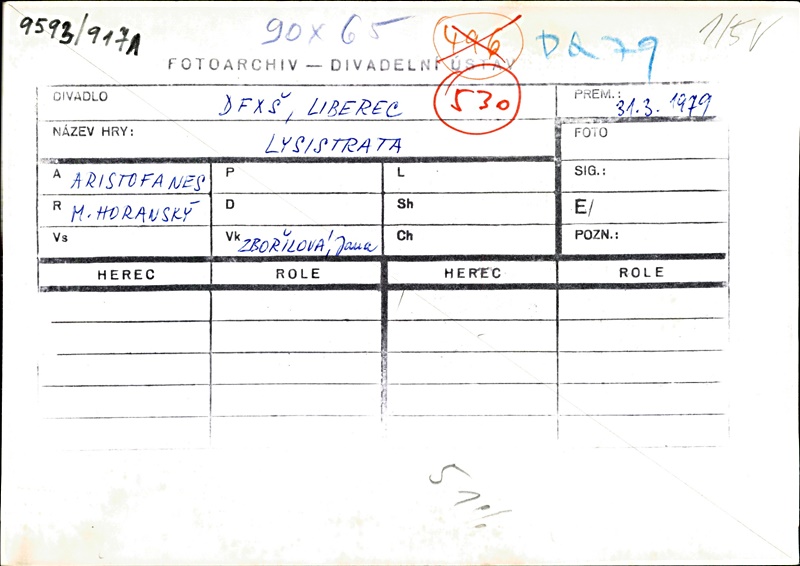 9593/917A
90 x 65
496
DQ 79
1/5V
FOTOARCHIV — DIVADELNÍ ÚSTAV
DIVADLO DFXŠ, LIBEREC
530
PREM.: 31.3. 1979
NÁZEV HRY: LYSISTRATA
FOTO
A ARISTOFANES P L SIG.:
R M. HORANSKÝ D Sh E/
Vs Vk ZBOŘILOVÁ, Jana Ch POZN.:
HEREC ROLE HEREC ROLE